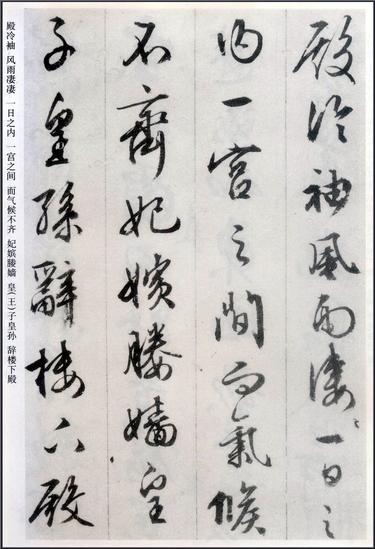 殿冷袖風雨凄〻一日之
内一宫之間而氣候
不齊妃嬪媵嬙皇
子皇孫辭樓下殿
殿冷袖 风雨凄凄 一日之内 一宫之间 而气候不齐 妃嫔媵嫱 皇(王)子皇孙 辞楼下殿